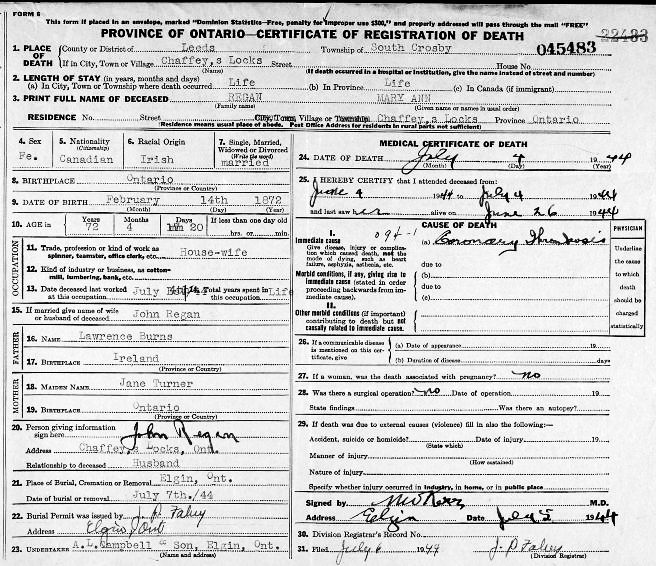 FORM 6
This form if placed in an envelope, marked "Dominion Statistics—Free, penalty for improper use $300," and properly addressed will pass through the mail "FREE"
PROVINCE OF ONTARIO—CERTIFICATE OF REGISTRATION OF DEATH
1. PLACE OF DEATH County or District of Leeds Township of South Crosby 045483 22483
If in City, Town or Village Chaffey,s Locks Street House No
(Name) (If death occurred in a hospital or institution, give the name instead of street and number)
2. LENGTH OF STAY (in years, months and days)
(a) In City, Town or Township where death occurred Life (b) In Province Life (c) In Canada (if immigrant)
3. PRINT FULL NAME OF DECEASED REGAN MARY ANN
(Family name) (Given name or names in usual order)
RESIDENCE No. Street City, Town, Village or Township Chaffey,s Locks Province Ontario
(Residence means usual place of abode. Post Office Address for residents in rural parts not sufficient)
4. Sex Fe. 5. Nationality (Citizenship) Canadian 6. Racial Origin Irish 7. Single, Married, Widowed or Divorced (Write the word) married
8. BIRTHPLACE Ontario
(Province or Country)
9. DATE OF BIRTH February 14th 1872
(Month) (Day) (Year)
10. AGE in Years 72 Months 4 Days 20 If less than one day old hrs. or min.
OCCUPATION
11. Trade, profession or kind of work as spinner, teamster, office clerk, etc. House-wife
12. Kind of industry or business, as cotton-mill, lumbering, bank, etc.
13. Date deceased last worked at this occupation July 4th/44 14. Total years spent in this occupation Life
15. If married give name of wife or husband of deceased John Regan
FATHER
16. NAME Lawrence Burns
17. BIRTHPLACE Ireland
(Province or Country)
MOTHER
18. MAIDEN NAME Jane Turner
19. BIRTHPLACE Ontario
(Province or Country)
20. Person giving information sign here John Regan
Address Chaffey,s Locks, Ont.
Relationship to deceased Husband
21. Place of Burial, Cremation or Removal Elgin, Ont.
Date of burial or removal July 7th./44
22. Burial Permit was issued by J. P. Faley
Address Elgin Ont
23. UNDERTAKER A.L. Campbell & Son, Elgin, Ont.
(Name and address)
MEDICAL CERTIFICATE OF DEATH
24. DATE OF DEATH July 4 1944
(Month) (Day) (Year)
25. I HEREBY CERTIFY that I attended deceased from:
June 4 1944 to July 4 1944
and last saw her alive on June 26 1944
CAUSE OF DEATH
094-1
I.
Immediate cause (a) Coronary Thrombosis
Give disease, injury or complication which caused death, not the mode of dying, such as heart failure, asphyxia, asthenia, etc.
due to
Morbid conditions, if any, giving rise to immediate cause (stated in order proceeding backwards from immediate cause). (b)
due to
(c)
II.
Other morbid conditions (if important) contributing to death but not causally related to immediate cause.
PHYSICIAN
Underline the cause to which death should be charged statistically
26. If a communicable disease is mentioned on this certificate, give (a) Date of appearance 19
(b) Duration of disease days
27. If a woman, was the death associated with pregnancy? no
28. Was there a surgical operation? no Date of operation 19
State findings Was there an autopsy?
29. If death was due to external causes (violence) fill in also the following:—
Accident, suicide or homicide? Date of injury 19
(State which)
Manner of injury
(How sustained)
Nature of injury
Specify whether injury occurred in industry, in home, or in public place
Signed by M.D.
Address Elgin Date July 5 1944
30. Division Registrar's Record No.
31. Filed July 6 1944 J. P. Faley
(Division Registrar)